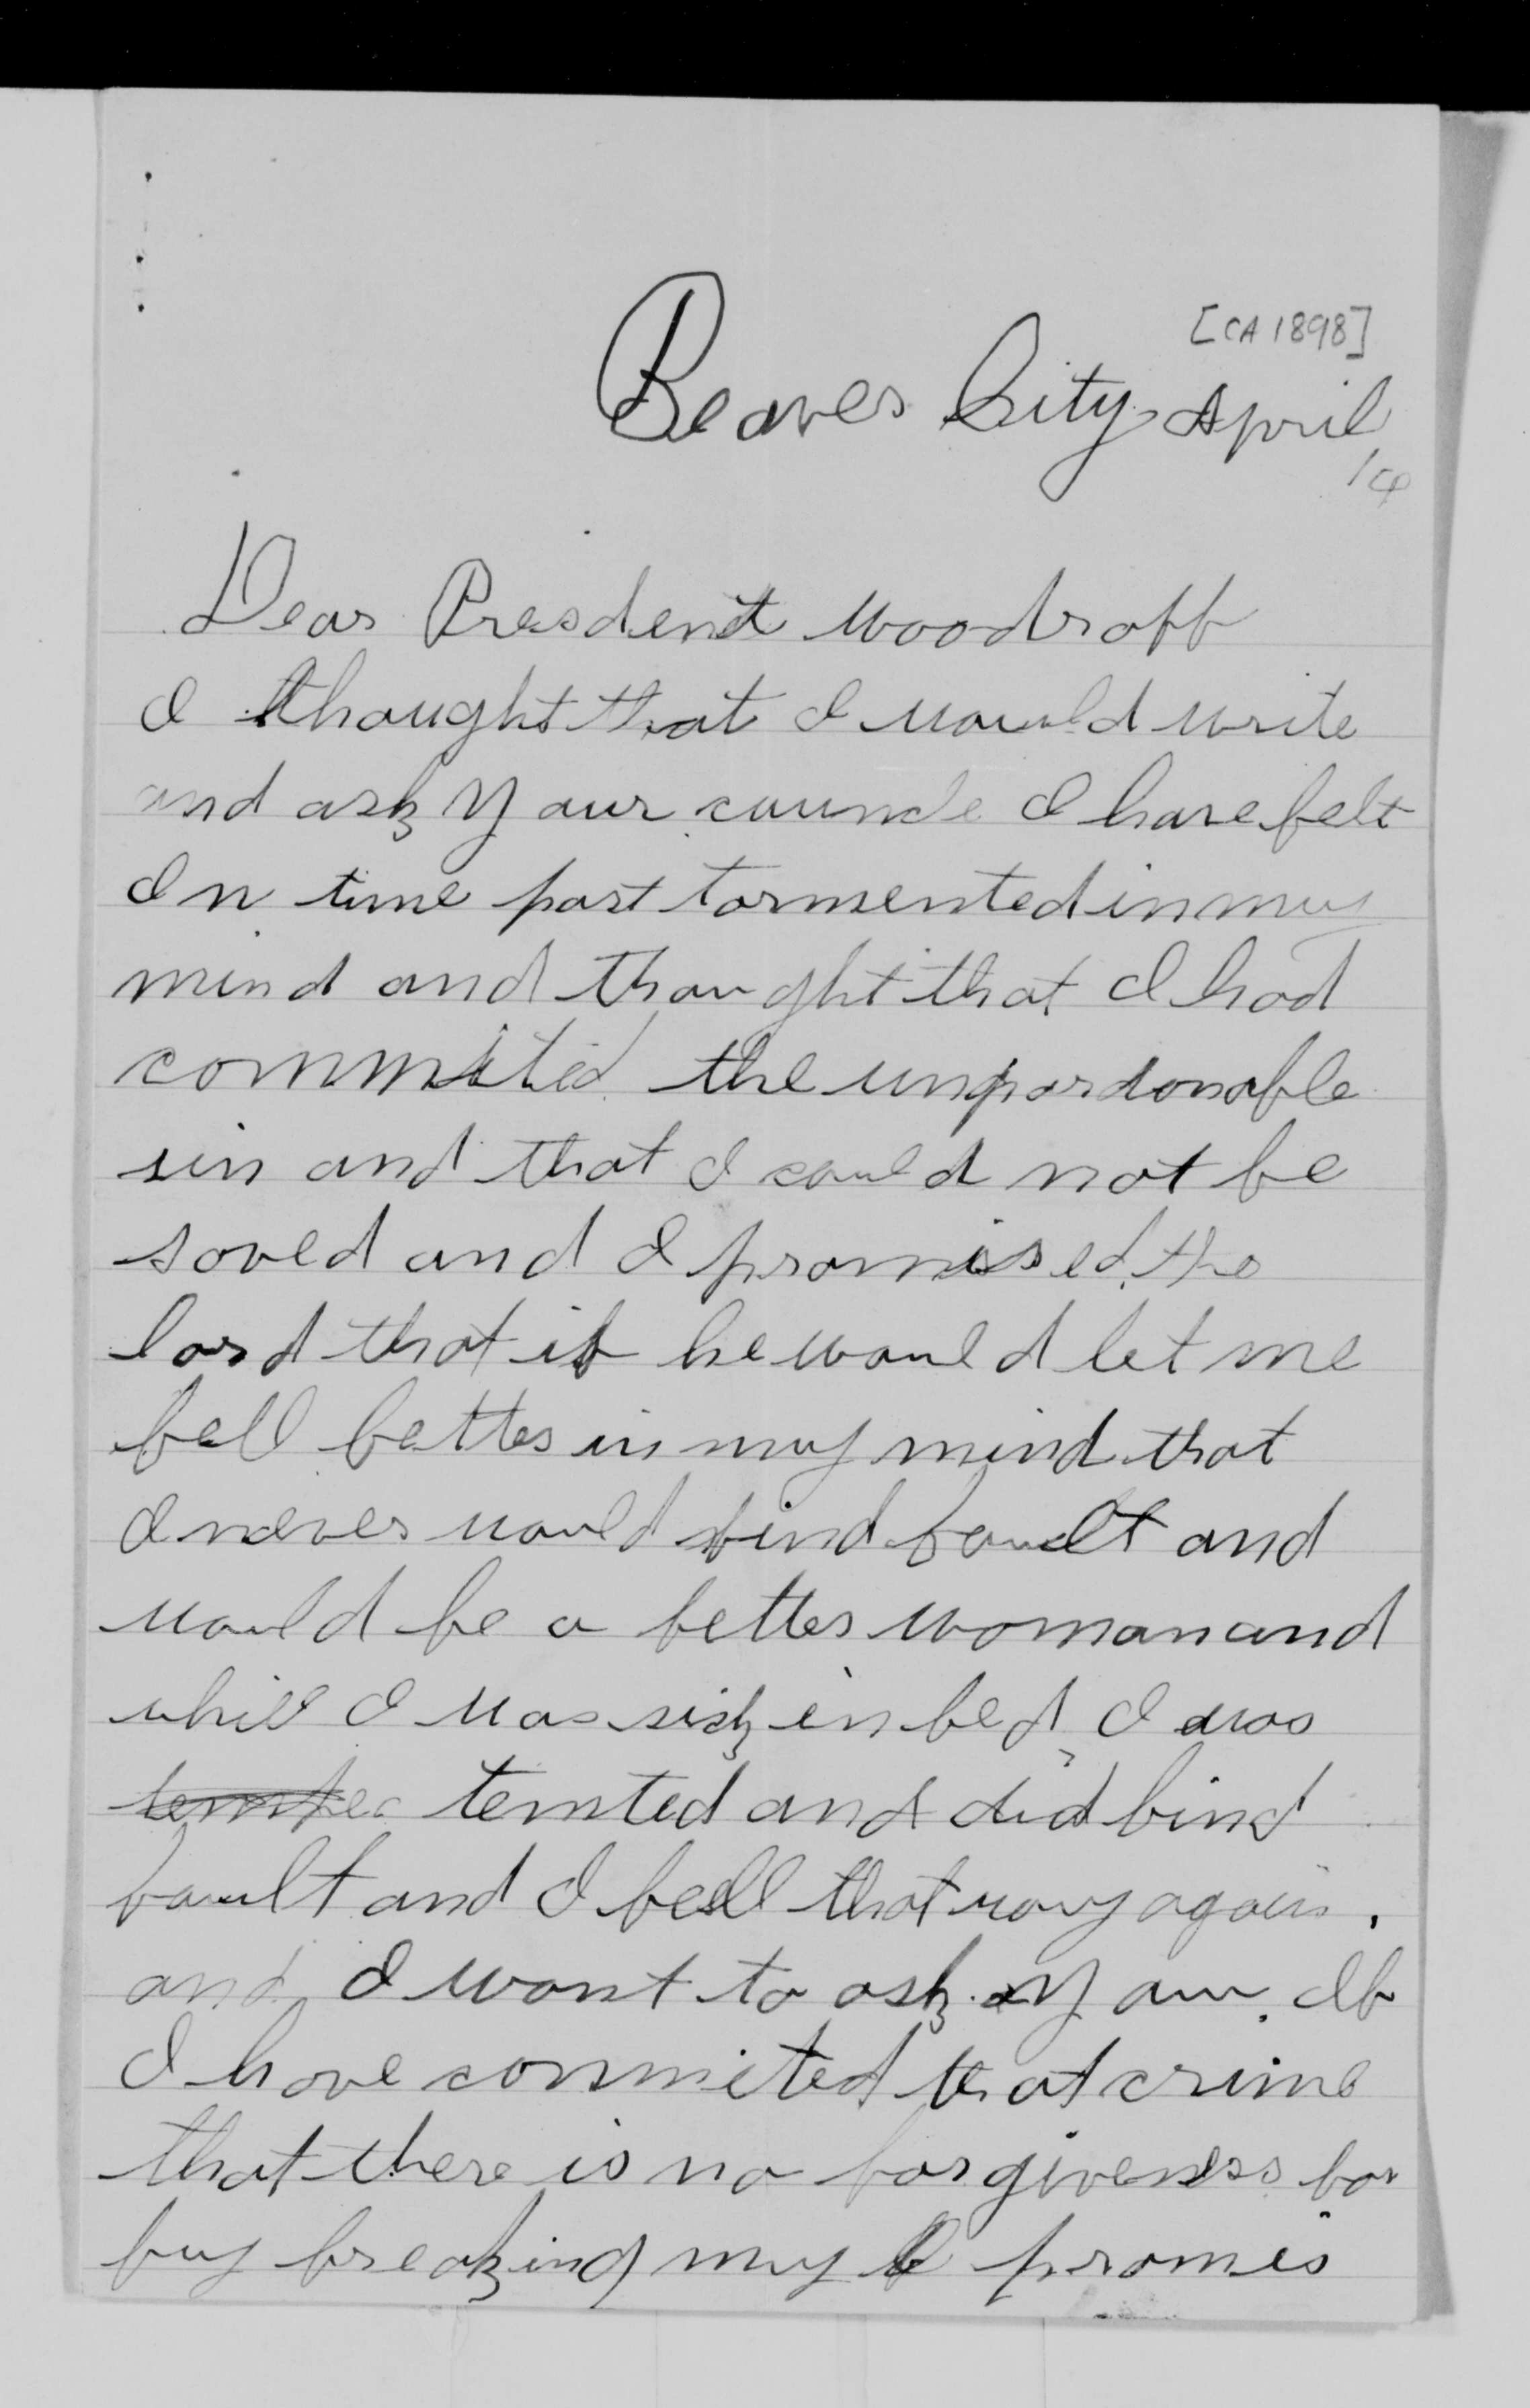 [CA 1898]
Beaver City April
14
Dear Presdent woodroff
I thought that I would write
and ask Your councle I have felt
In time past tormented in my
mind and thought that I had
commited the unpardonable
sin and that I could not be
saved and I promised the
lord that if he would let me
fell better in my mind that
I never would find fault and
would be a better woman and
while I was sick in bed I was
temted and did find
fault and I feell that way again.
and I want to ask You If
I have commited that crime
that there is no forgiveness for
by breaking my promis